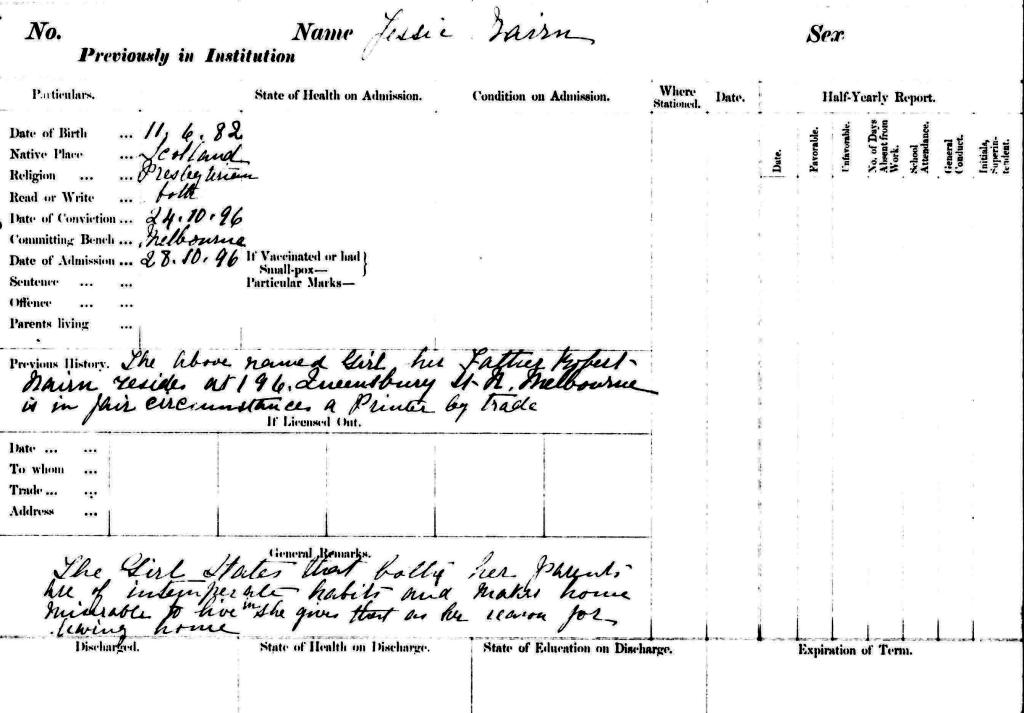 No. Name Jessie Nairn Sex
Previously in Institution
Particulars. State of Health on Admission. Condition on Admission. Where Stationed. Date. Half-Yearly Report.
Date. Favorable. Unfavorable. No. of Days Absent from Work. School Attendance. General Conduct. Initials, Superintendent.
Date of Birth ... 11. 6. 82
Native Place ... Scotland
Religion ... ... Presbyterian
Read or Write ... both
Date of Conviction ... 24.10.96
Committing Bench ... Melbourne
Date of Admission ... 28.10.96 If Vaccinated or had }
Small-pox—
Sentence ... ... Particular Marks—
Offence ... ...
Parents living ...
Previous History. The above named Girl her Father Robert
Nairn resides at 196. Queensbury St N. Melbourne
is in fair circumstances a Printer by trade
If Licensed Out.
Date ... ...
To whom ...
Trade ... ...
Address ...
General Remarks.
The Girl States that both her parents
are of intemperate habits and makes home
miserable to live in She gives that as her reason for
leaving home
Discharged. State of Health on Discharge. State of Education on Discharge. Expiration of Term.